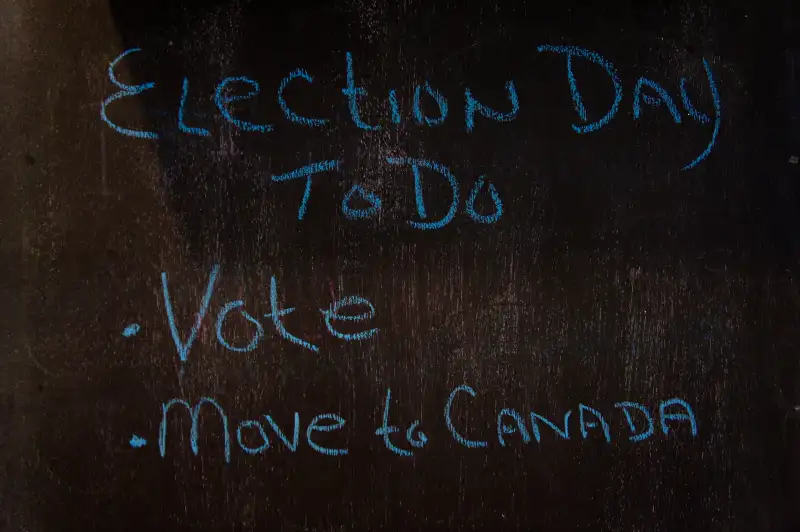 Election Day
To Do
· Vote
· Move to Canada